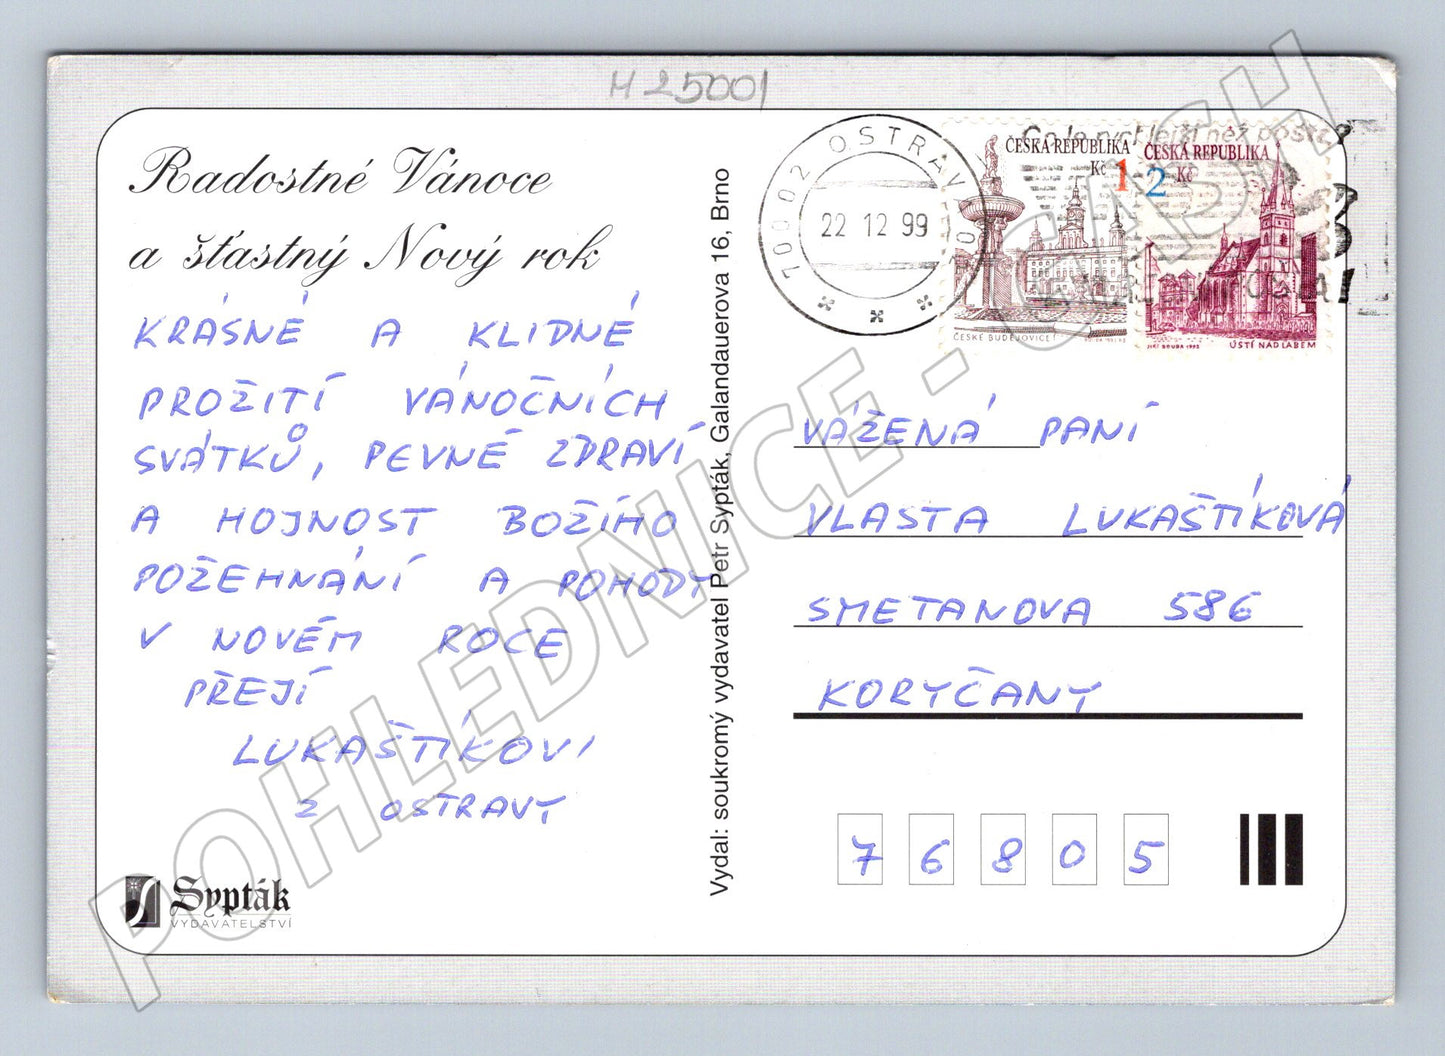 H 25001
Radostné Vánoce
a šťastný Nový rok
KRÁSNÉ A KLIDNÉ
PROŽITÍ VÁNOČNÍCH
SVÁTKŮ, PEVNÉ ZDRAVÍ
A HOJNOST BOŽÍHO
POŽEHNÁNÍ A POHODY
V NOVÉM ROCE
PŘEJÍ
LUKAŠTÍKOVI
Z OSTRAVY
Sypták
VYDAVATELSTVÍ
Vydal: soukromý vydavatel Petr Sypták, Galandauerova 16, Brno
70002 OSTRAVA
22 12 99
Co je rychlejší než pošta
ČESKÁ REPUBLIKA
Kč 1
ČESKÉ BUDĚJOVICE
ČESKÁ REPUBLIKA
2 Kč
JIŘÍ BOUDA 1993
ÚSTÍ NAD LABEM
VÁŽENÁ PANÍ
VLASTA LUKAŠTÍKOVÁ
SMETANOVA 586
KORYČANY
76805
POHLEDNICE - CASH